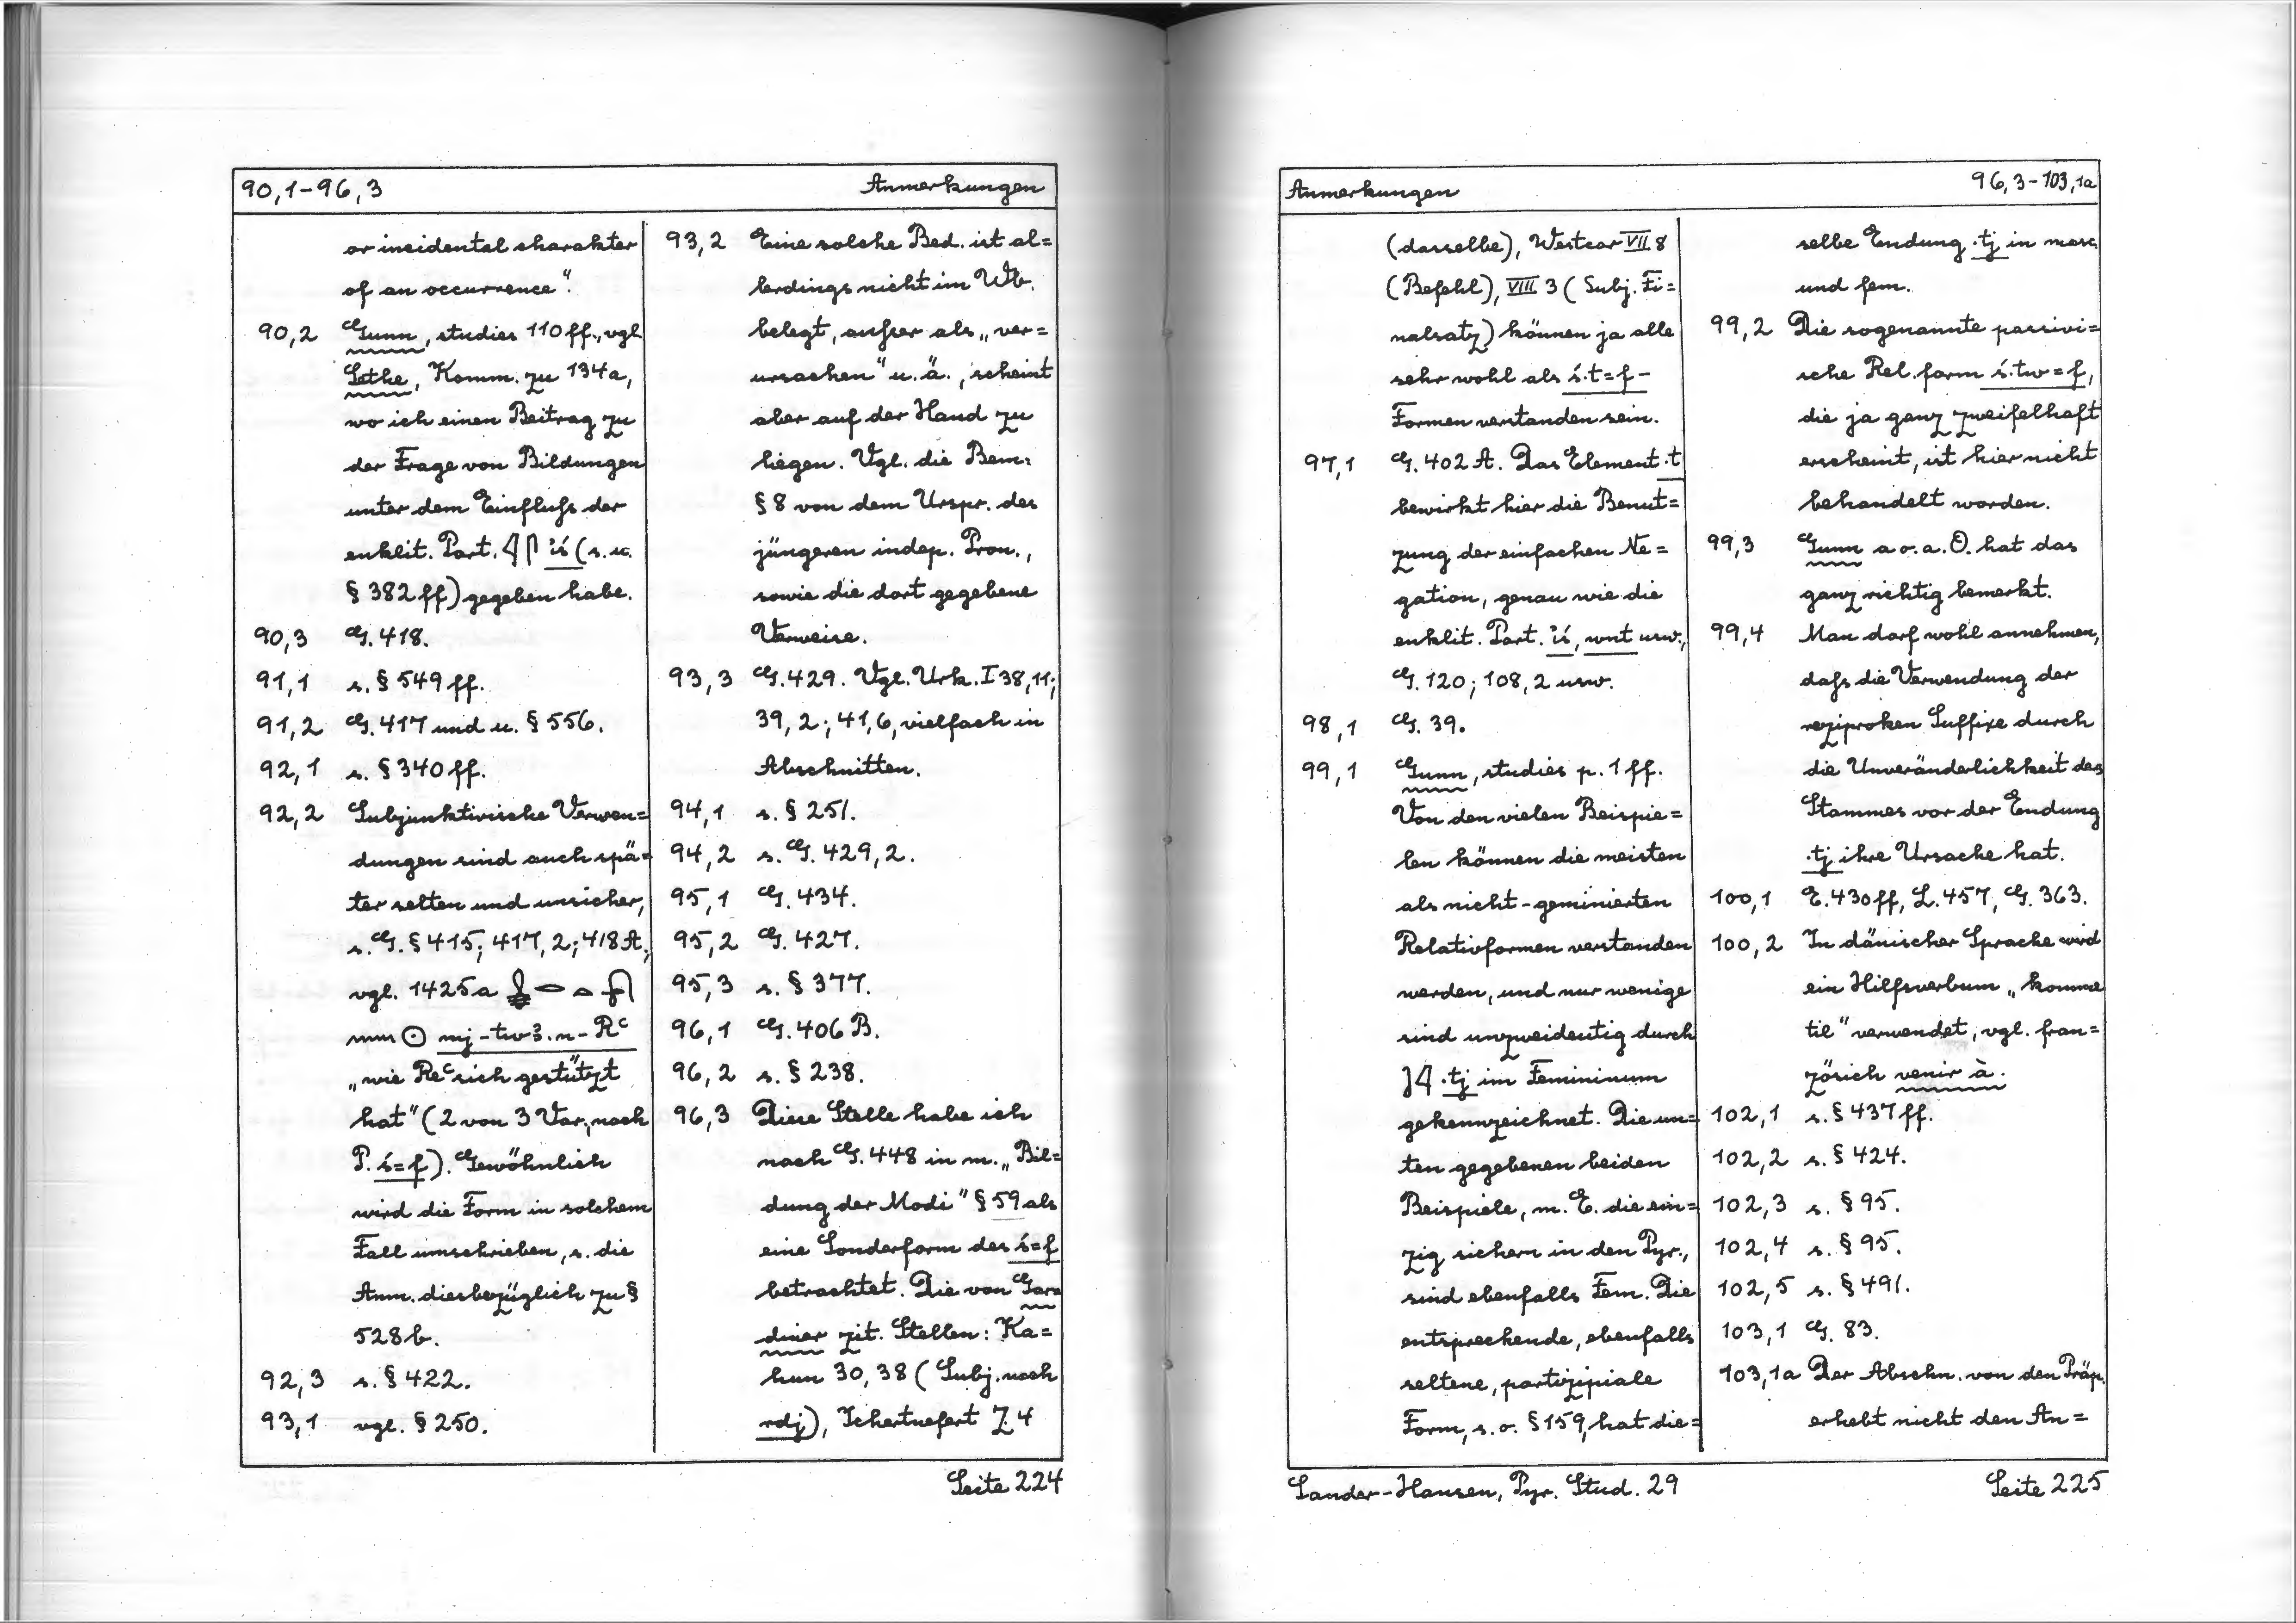 90,1-96,3 Anmerkungen
or incidental charakter
of an occurrence".
90,2 Gunn, studies 110 ff., vgl.
Sethe, Komm. zu 134a,
wo ich einen Beitrag zu
der Frage von Bildungen
unter dem Einfluß der
enklit. Part. 𓇋𓋴 ỉś (s. u.
§ 382 ff) gegeben habe.
90,3 G. 418.
91,1 s. § 549 ff.
91,2 G. 417 und u. § 556.
92,1 s. § 340 ff.
92,2 Subjunktivische Verwen=
dungen sind auch spä=
ter selten und unsicher,
s. G. § 415; 417, 2; 418 A;
vgl. 1425a
mj-tw3.n-Rᶜ
„wie Reᶜ sich gestützt
hat" (2 von 3 Var., nach
P. ś=f). Gewöhnlich
wird die Form in solchem
Fall umschrieben, s. die
Anm. diesbezüglich zu §
528b.
92,3 s. § 422.
93,1 vgl. § 250.
93,2 Eine solche Bed. ist al=
lerdings nicht im Wb.
belegt, außer als „ver=
ursachen" u. ä., scheint
aber auf der Hand zu
liegen. Vgl. die Bem.
§ 8 von dem Urspr. des
jüngeren indep. Pron.,
sowie die dort gegebene
Verweise.
93,3 G. 429. Vgl. Urk. I 38,11;
39,2; 41,6, vielfach in
Abschnitten.
94,1 s. § 251.
94,2 s. G. 429,2.
95,1 G. 434.
95,2 G. 427.
95,3 s. § 377.
96,1 G. 406 B.
96,2 s. § 238.
96,3 Diese Stelle habe ich
nach G. 448 in m. „Bil=
dung der Modi" § 59 als
eine Sonderform des ś=f
betrachtet. Die von Gar=
diner zit. Stellen: Ka=
hun 30,38 (Subj. nach
rdj), Ichertnefert Z. 4
Seite 224
Anmerkungen 96,3-103,1a
(dasselbe), Westcar VII 8
(Befehl), VIII 3 (Subj. Fi=
nalsatz) können ja alle
sehr wohl als ś.t=f-
Formen verstanden sein.
97,1 G. 402 A. Das Element .t
bewirkt hier die Benut=
zung der einfachen Ne=
gation, genau wie die
enklit. Part. ỉś, wnt usw.,
G. 120; 108,2 usw.
98,1 G. 39.
99,1 Gunn, studies p. 1 ff.
Von den vielen Beispie=
len können die meisten
als nicht-geminierten
Relativformen verstanden
werden, und nur wenige
sind unzweideutig durch
.tj im Femininum
gekennzeichnet. Die un=
ten gegebenen beiden
Beispiele, m. E. die ein=
zig sichern in den Pyr.,
sind ebenfalls Fem. Die
entsprechende, ebenfalls
seltene, partizipiale
Form, s. o. § 159, hat die=
selbe Endung .tj in masc.
und fem.
99,2 Die sogenannte passivi=
sche Rel. form ś.tw=f,
die ja ganz zweifelhaft
erscheint, ist hier nicht
behandelt worden.
99,3 Gunn a. o. a. O. hat das
ganz richtig bemerkt.
99,4 Man darf wohl annehmen,
daß die Verwendung der
reziproken Suffixe durch
die Unveränderlichkeit des
Stammes vor der Endung
.tj ihre Ursache hat.
100,1 E. 430 ff, L. 457, G. 363.
100,2 In dänischer Sprache wird
ein Hilfsverbum „komme
til" verwendet, vgl. fran=
zösich venir à.
102,1 s. § 437 ff.
102,2 s. § 424.
102,3 s. § 95.
102,4 s. § 95.
102,5 s. § 491.
103,1 G. 83.
103,1a Der Abschn. von den Präp.
erhebt nicht den An=
Sander-Hansen, Pyr. Stud. 29 Seite 225